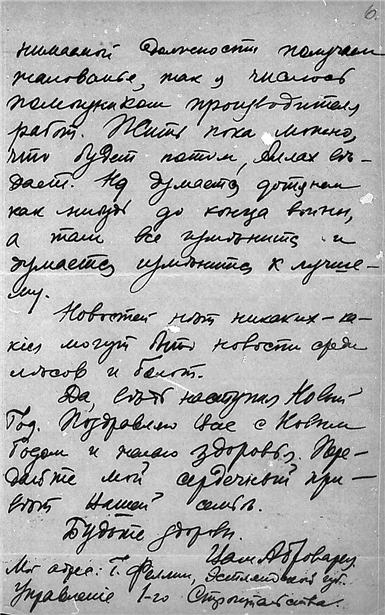 6.
нимаемой должности получаем
жалованье, так я числюсь
помощником производителя
работ. Жить пока можно,
что будет потом, Аллах вѣ-
дает. Но думается дотянем
как нибудь до конца войны,
а там все измѣнится и
думается измѣнится к лучше-
му.
Новостей нѣт никаких – ка-
кие могут быть новости среди
лѣсов и болот.
Да, вѣдь наступил Новый
Год. Поздравляю Вас с Новым
Годом и желаю здоровья. Пере-
дайте мой сердечный при-
вѣт Вашей семьѣ.
Будьте здоровы.
Ваш
Мой адрес: Г. Феллин, Эстляндской губ.
Управление 1-го Строительства.